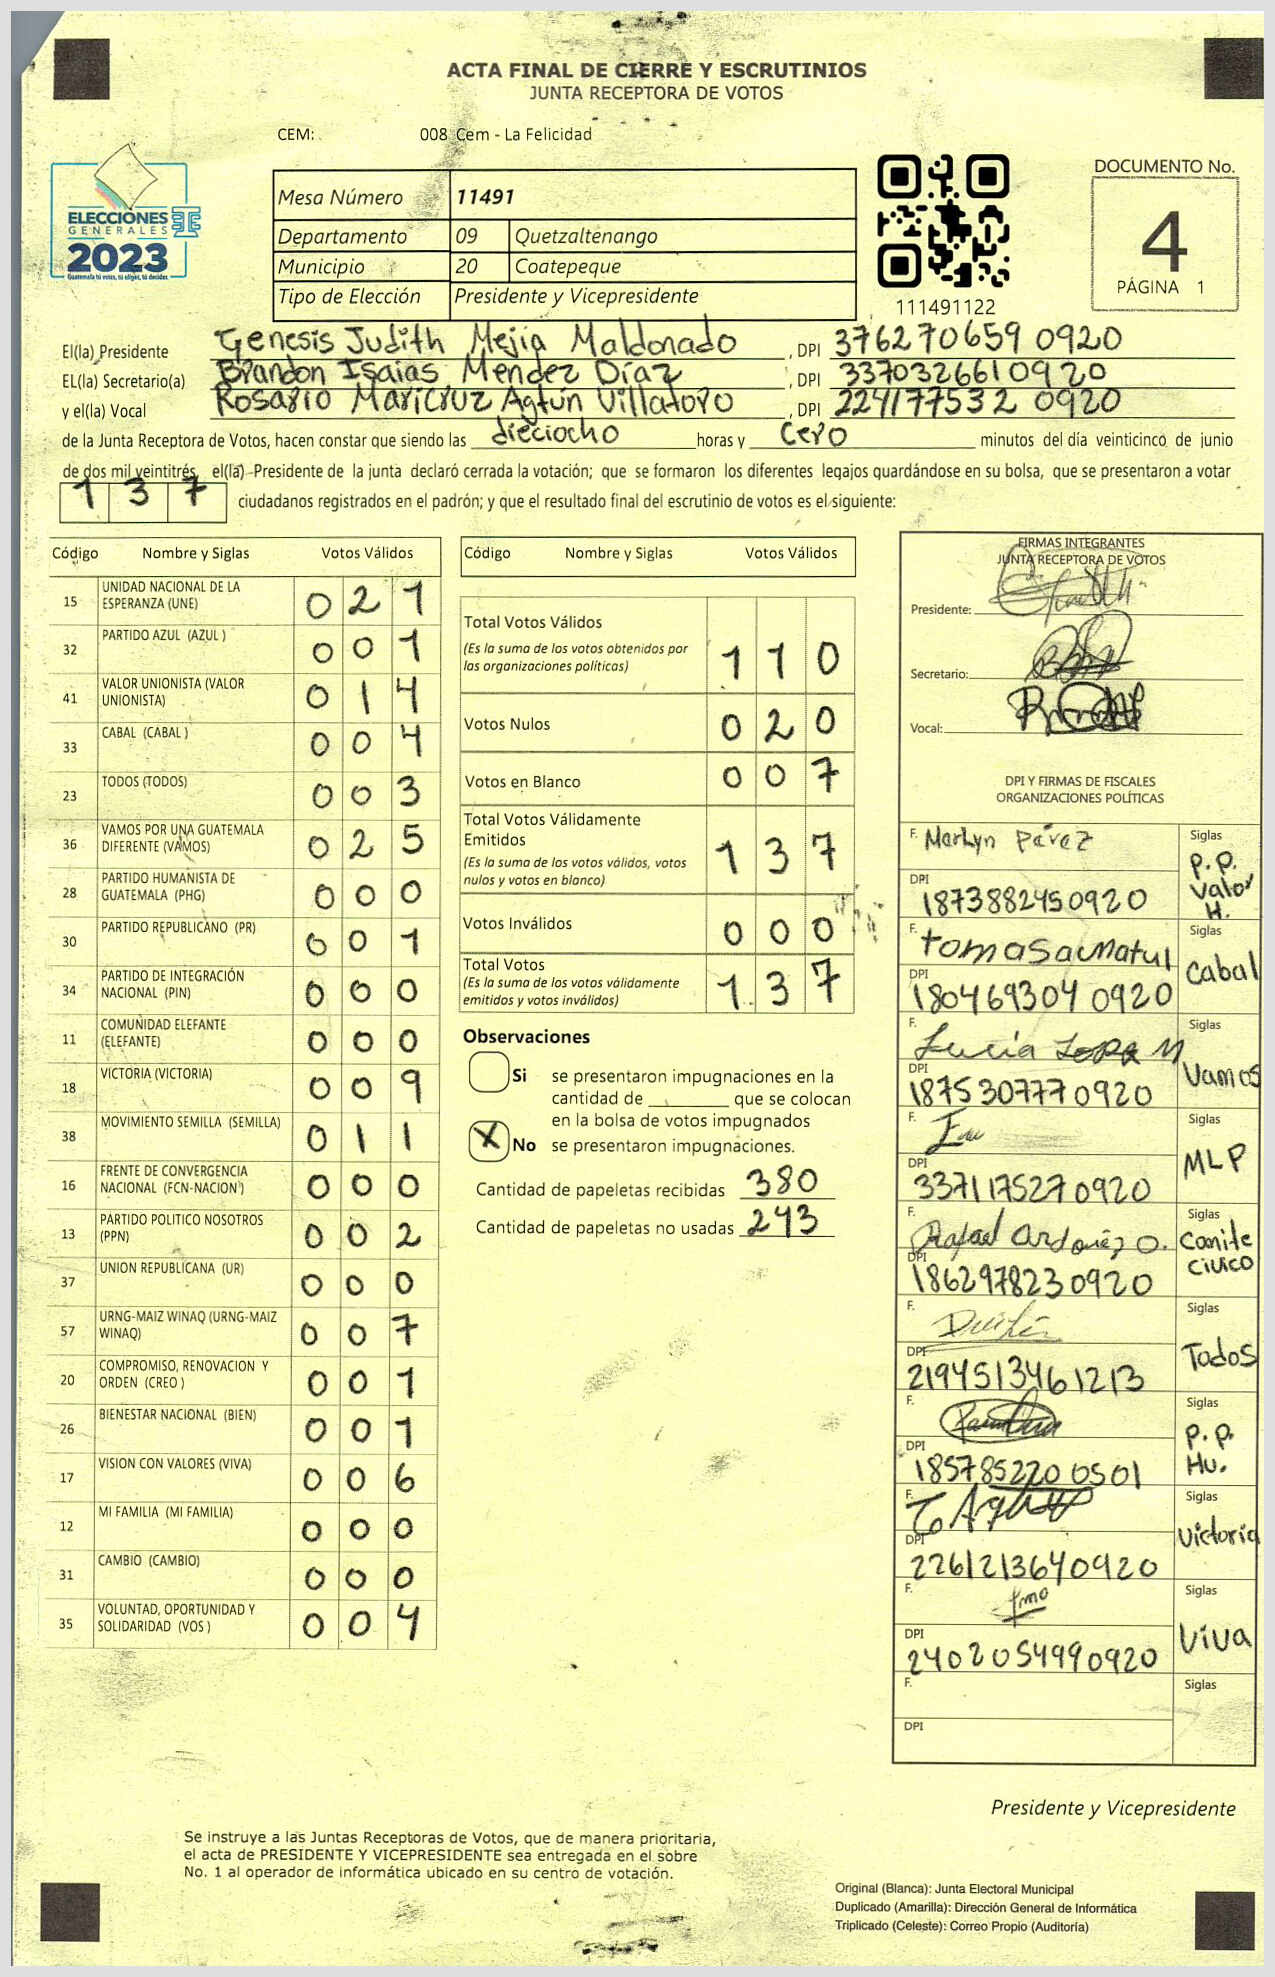 ACTA FINAL DE CIERRE Y ESCRUTINIOS
JUNTA RECEPTORA DE VOTOS
CEM: 008 Cem - La Felicidad
ELECCIONES
GENERALES
2023
Guatemala tú votas, tú eliges, tú decides
Mesa Número 11491
Departamento 09 Quetzaltenango
Municipio 20 Coatepeque
Tipo de Elección Presidente y Vicepresidente
111491122
DOCUMENTO No.
4
PÁGINA 1
El(la) Presidente Genesis Judith Mejia Maldonado, DPI 376270659 0920
EL(la) Secretario(a) Brandon Isaias Mendez Díaz, DPI 3370326610920
y el(la) Vocal Rosario Maricruz Agtún Villatoro, DPI 224177532 0920
de la Junta Receptora de Votos, hacen constar que siendo las dieciocho horas y cero minutos del día veinticinco de junio
de dos mil veintitrés, el(la) Presidente de la junta declaró cerrada la votación; que se formaron los diferentes legajos guardándose en su bolsa, que se presentaron a votar
137 ciudadanos registrados en el padrón; y que el resultado final del escrutinio de votos es el siguiente:
Código Nombre y Siglas Votos Válidos
15 UNIDAD NACIONAL DE LA ESPERANZA (UNE) 021
32 PARTIDO AZUL (AZUL ) 001
41 VALOR UNIONISTA (VALOR UNIONISTA) 014
33 CABAL (CABAL ) 004
23 TODOS (TODOS) 003
36 VAMOS POR UNA GUATEMALA DIFERENTE (VAMOS) 025
28 PARTIDO HUMANISTA DE GUATEMALA (PHG) 000
30 PARTIDO REPUBLICANO (PR) 001
34 PARTIDO DE INTEGRACIÓN NACIONAL (PIN) 000
11 COMUNIDAD ELEFANTE (ELEFANTE) 000
18 VICTORIA (VICTORIA) 009
38 MOVIMIENTO SEMILLA (SEMILLA) 011
16 FRENTE DE CONVERGENCIA NACIONAL (FCN-NACION) 000
13 PARTIDO POLITICO NOSOTROS (PPN) 002
37 UNION REPUBLICANA (UR) 000
57 URNG-MAIZ WINAQ (URNG-MAIZ WINAQ) 007
20 COMPROMISO, RENOVACION Y ORDEN (CREO ) 001
26 BIENESTAR NACIONAL (BIEN) 001
17 VISION CON VALORES (VIVA) 006
12 MI FAMILIA (MI FAMILIA) 000
31 CAMBIO (CAMBIO) 000
35 VOLUNTAD, OPORTUNIDAD Y SOLIDARIDAD (VOS ) 004
Código Nombre y Siglas Votos Válidos
Total Votos Válidos
(Es la suma de los votos obtenidos por
las organizaciones políticas) 110
Votos Nulos 020
Votos en Blanco 007
Total Votos Válidamente
Emitidos
(Es la suma de los votos válidos, votos
nulos y votos en blanco) 137
Votos Inválidos 000
Total Votos
(Es la suma de los votos válidamente
emitidos y votos inválidos) 137
Observaciones
Si se presentaron impugnaciones en la
cantidad de ________ que se colocan
en la bolsa de votos impugnados
X No se presentaron impugnaciones.
Cantidad de papeletas recibidas 380
Cantidad de papeletas no usadas 243
FIRMAS INTEGRANTES
JUNTA RECEPTORA DE VOTOS
Presidente:
Secretario:
Vocal:
DPI Y FIRMAS DE FISCALES
ORGANIZACIONES POLÍTICAS
F. Marlyn Pérez Siglas P.P. Valor H.
DPI 1873882450920
F. tomasa Matul Siglas Cabal
DPI 180469304 0920
F. Lucía Siglas Vamos
DPI 1875307770920
F. Siglas MLP
DPI 3371175270920
F. Rafael Ordoñez O. Siglas Comite civico
DPI 1862978230920
F. Siglas Todos
DPI 2194513461213
F. Siglas P.P. Hu.
DPI 185785220 0501
F. Siglas Victoria
DPI 2261213640920
F. Siglas Viva
DPI 2402054990920
F. Siglas
DPI
Presidente y Vicepresidente
Se instruye a las Juntas Receptoras de Votos, que de manera prioritaria,
el acta de PRESIDENTE Y VICEPRESIDENTE sea entregada en el sobre
No. 1 al operador de informática ubicado en su centro de votación.
Original (Blanca): Junta Electoral Municipal
Duplicado (Amarilla): Dirección General de Informática
Triplicado (Celeste): Correo Propio (Auditoría)